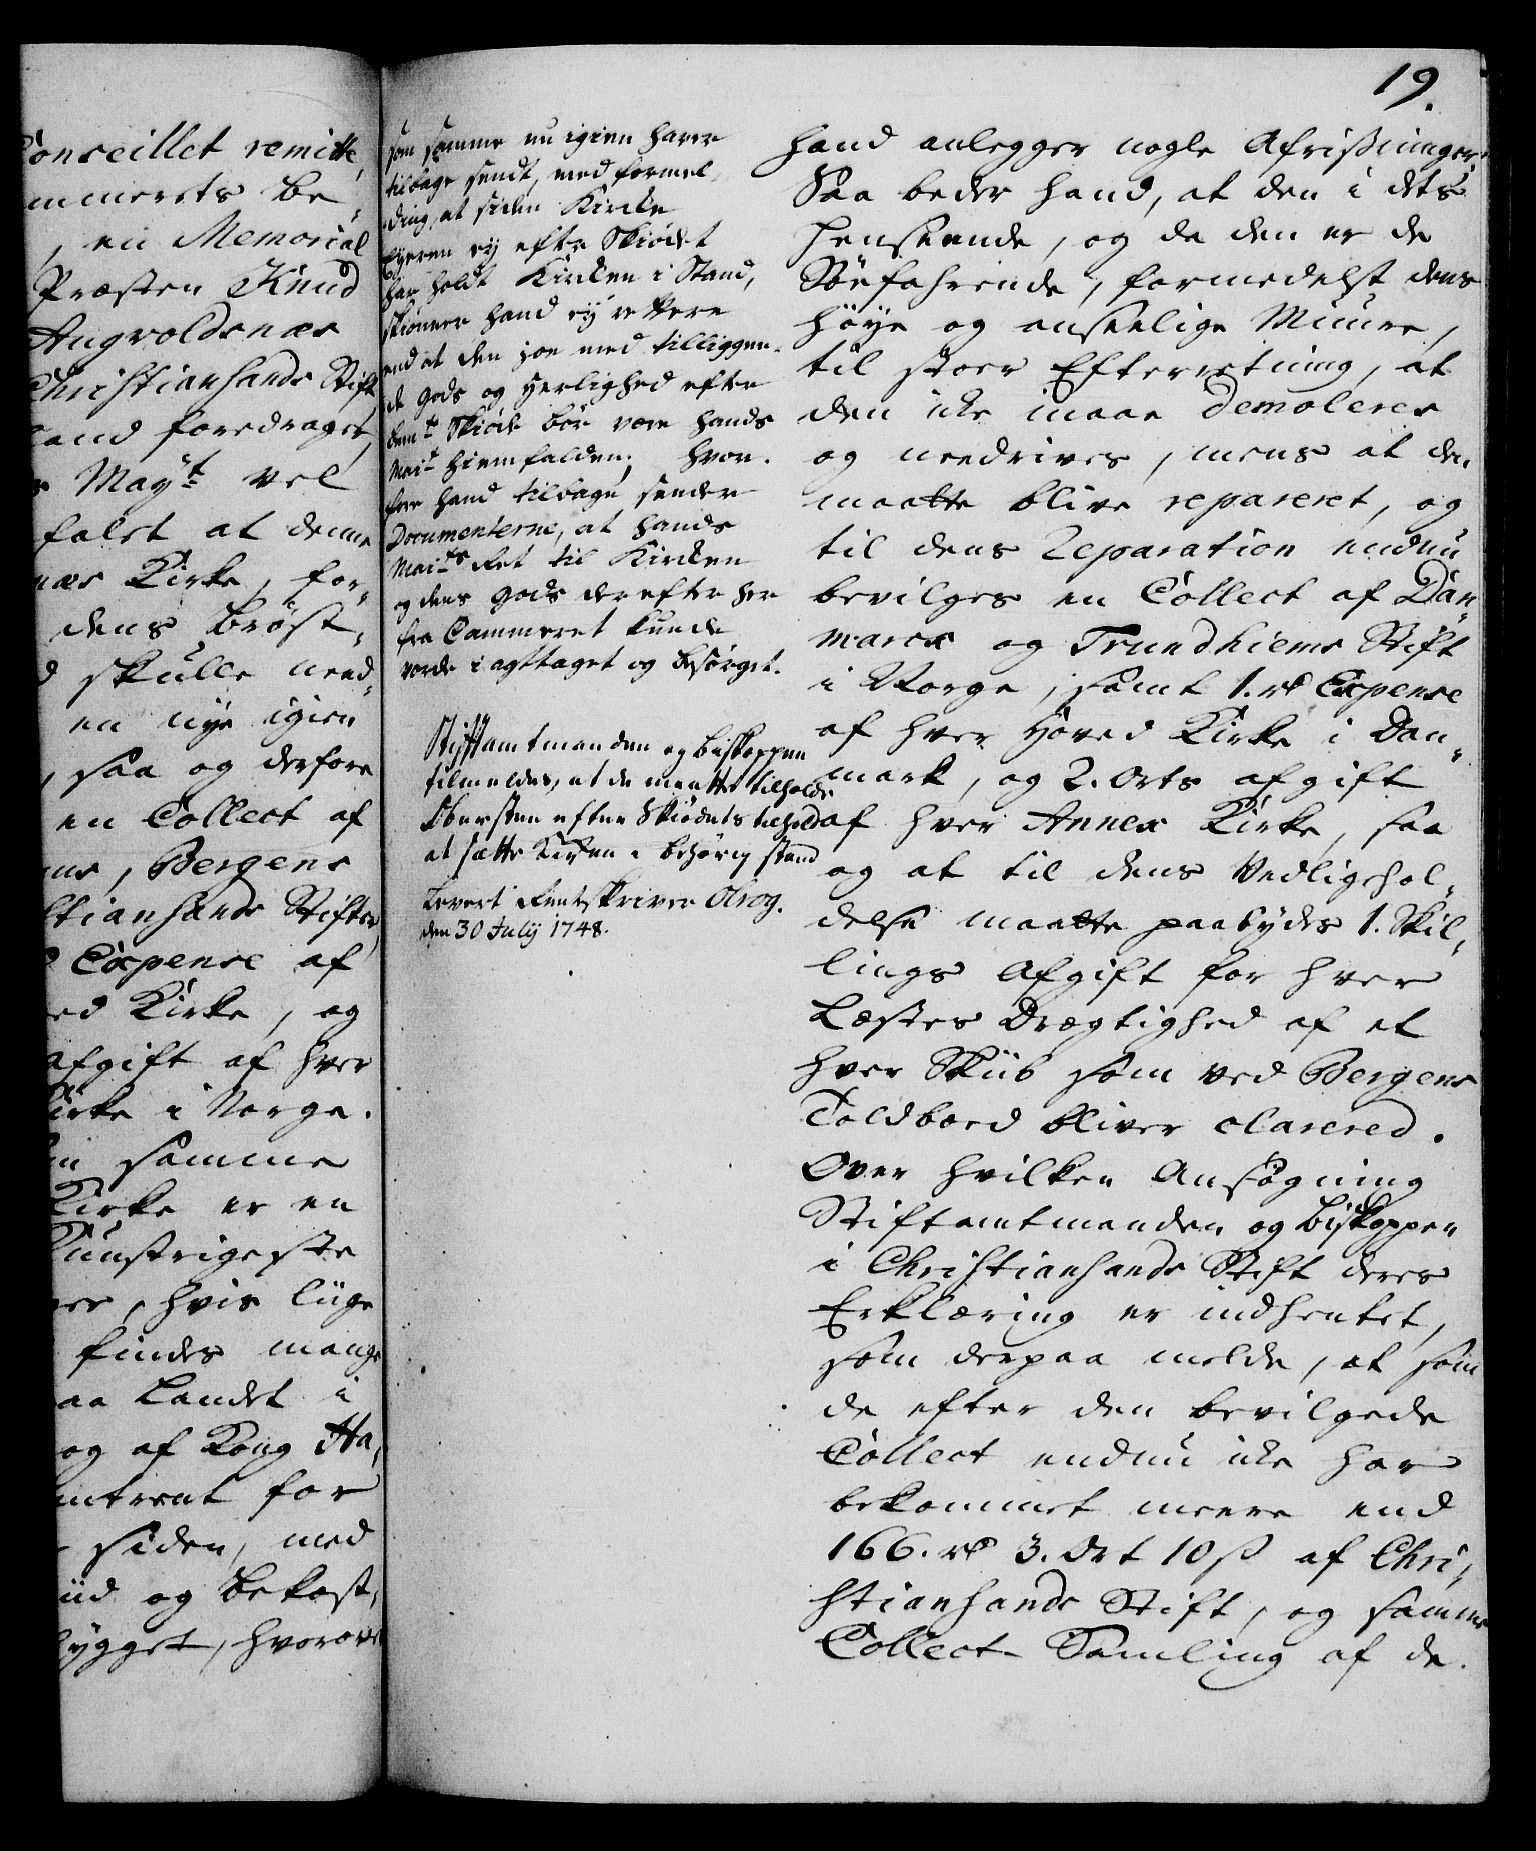 onseillet remitte,
mmerets be,
, en Memorial
Præsten Knud
Augvoldsnæs
Christiansands Stift
and foredraget,
s Mayt vel
falet at denne
næs Kirke, for,
dens Bröst,
d skulle need,
en nye igien
, saa og derfore
en Collect af
ns, Bergens
stiansands Stifter
Expense af
ed Kirke, og
afgift af hver
Kirke i Norge.
samme
Kirke er en
Kunstrigeste
, hvis liige
findes mange
aa Landet i
og af Kong Ha,
mtrent for
siden, med
iid og bekost,
bygget, hvorover
som samme nu igien haver
tilbage sendt, med formel,
ding, at siden Kircke
Eyeren ey efter Skiödet
har holdt Kircken i Stand,
skiönner hand ey rettere
end at den jo med tilliggen,
de gods og herlighed efter
bemte Skiöde bör være Hands
Mait hiemfalden, hvor,
fore hand tilbage sender
Documenterne, at Hands
Maits Ret til Kircken
og dens gods derefter her
fra Cammeret kunde
vorde iagttaget og besörget.
Stiftamtmanden og Biskoppen
tilmeldes, at de maatte tilholde
Obersten efter Skiödets tilhold
at sætte Kirken i behörig stand
Levert Rentskriver Olrog.
den 30 July 1748.
19.
hand anlegger nogle Afrissninger.
Saa beder hand, at den i dets
Henseende, og da den er de
Söefahrende, formedelst dens
höye og anseelige Muure,
til stoer Efterretning, at
den icke maae demoleres
og needrives, mens at den
maatte blive repareret, og
til dens Reparation endnu
bevilges en Collect af Dan,
marck og Trundhiems Stift
i Norge, samt 1. rd Expense
af hver Hoved Kirke i Dan,
mark, og 2. Orts afgift
af hver Annex Kirke, saa
og at til dens Vedligehol,
delse maatte paabydes 1. Skil,
lings Afgift for hver
Læstes Drægtighed af et
hver Skiib som ved Bergens
Toldboed bliver clarered.
Over hvilken Ansögning
Stiftamtmanden og Biskoppen
i Christiansands Stift deres
Erklæring er indhentet,
som derpaa melde, at som
de efter den bevilgede
Collect endnu icke har
bekommet meere end
166. rd 3. Ort 10 ß af Chri,
stiansands Stift, og samme
Collect Samling af de